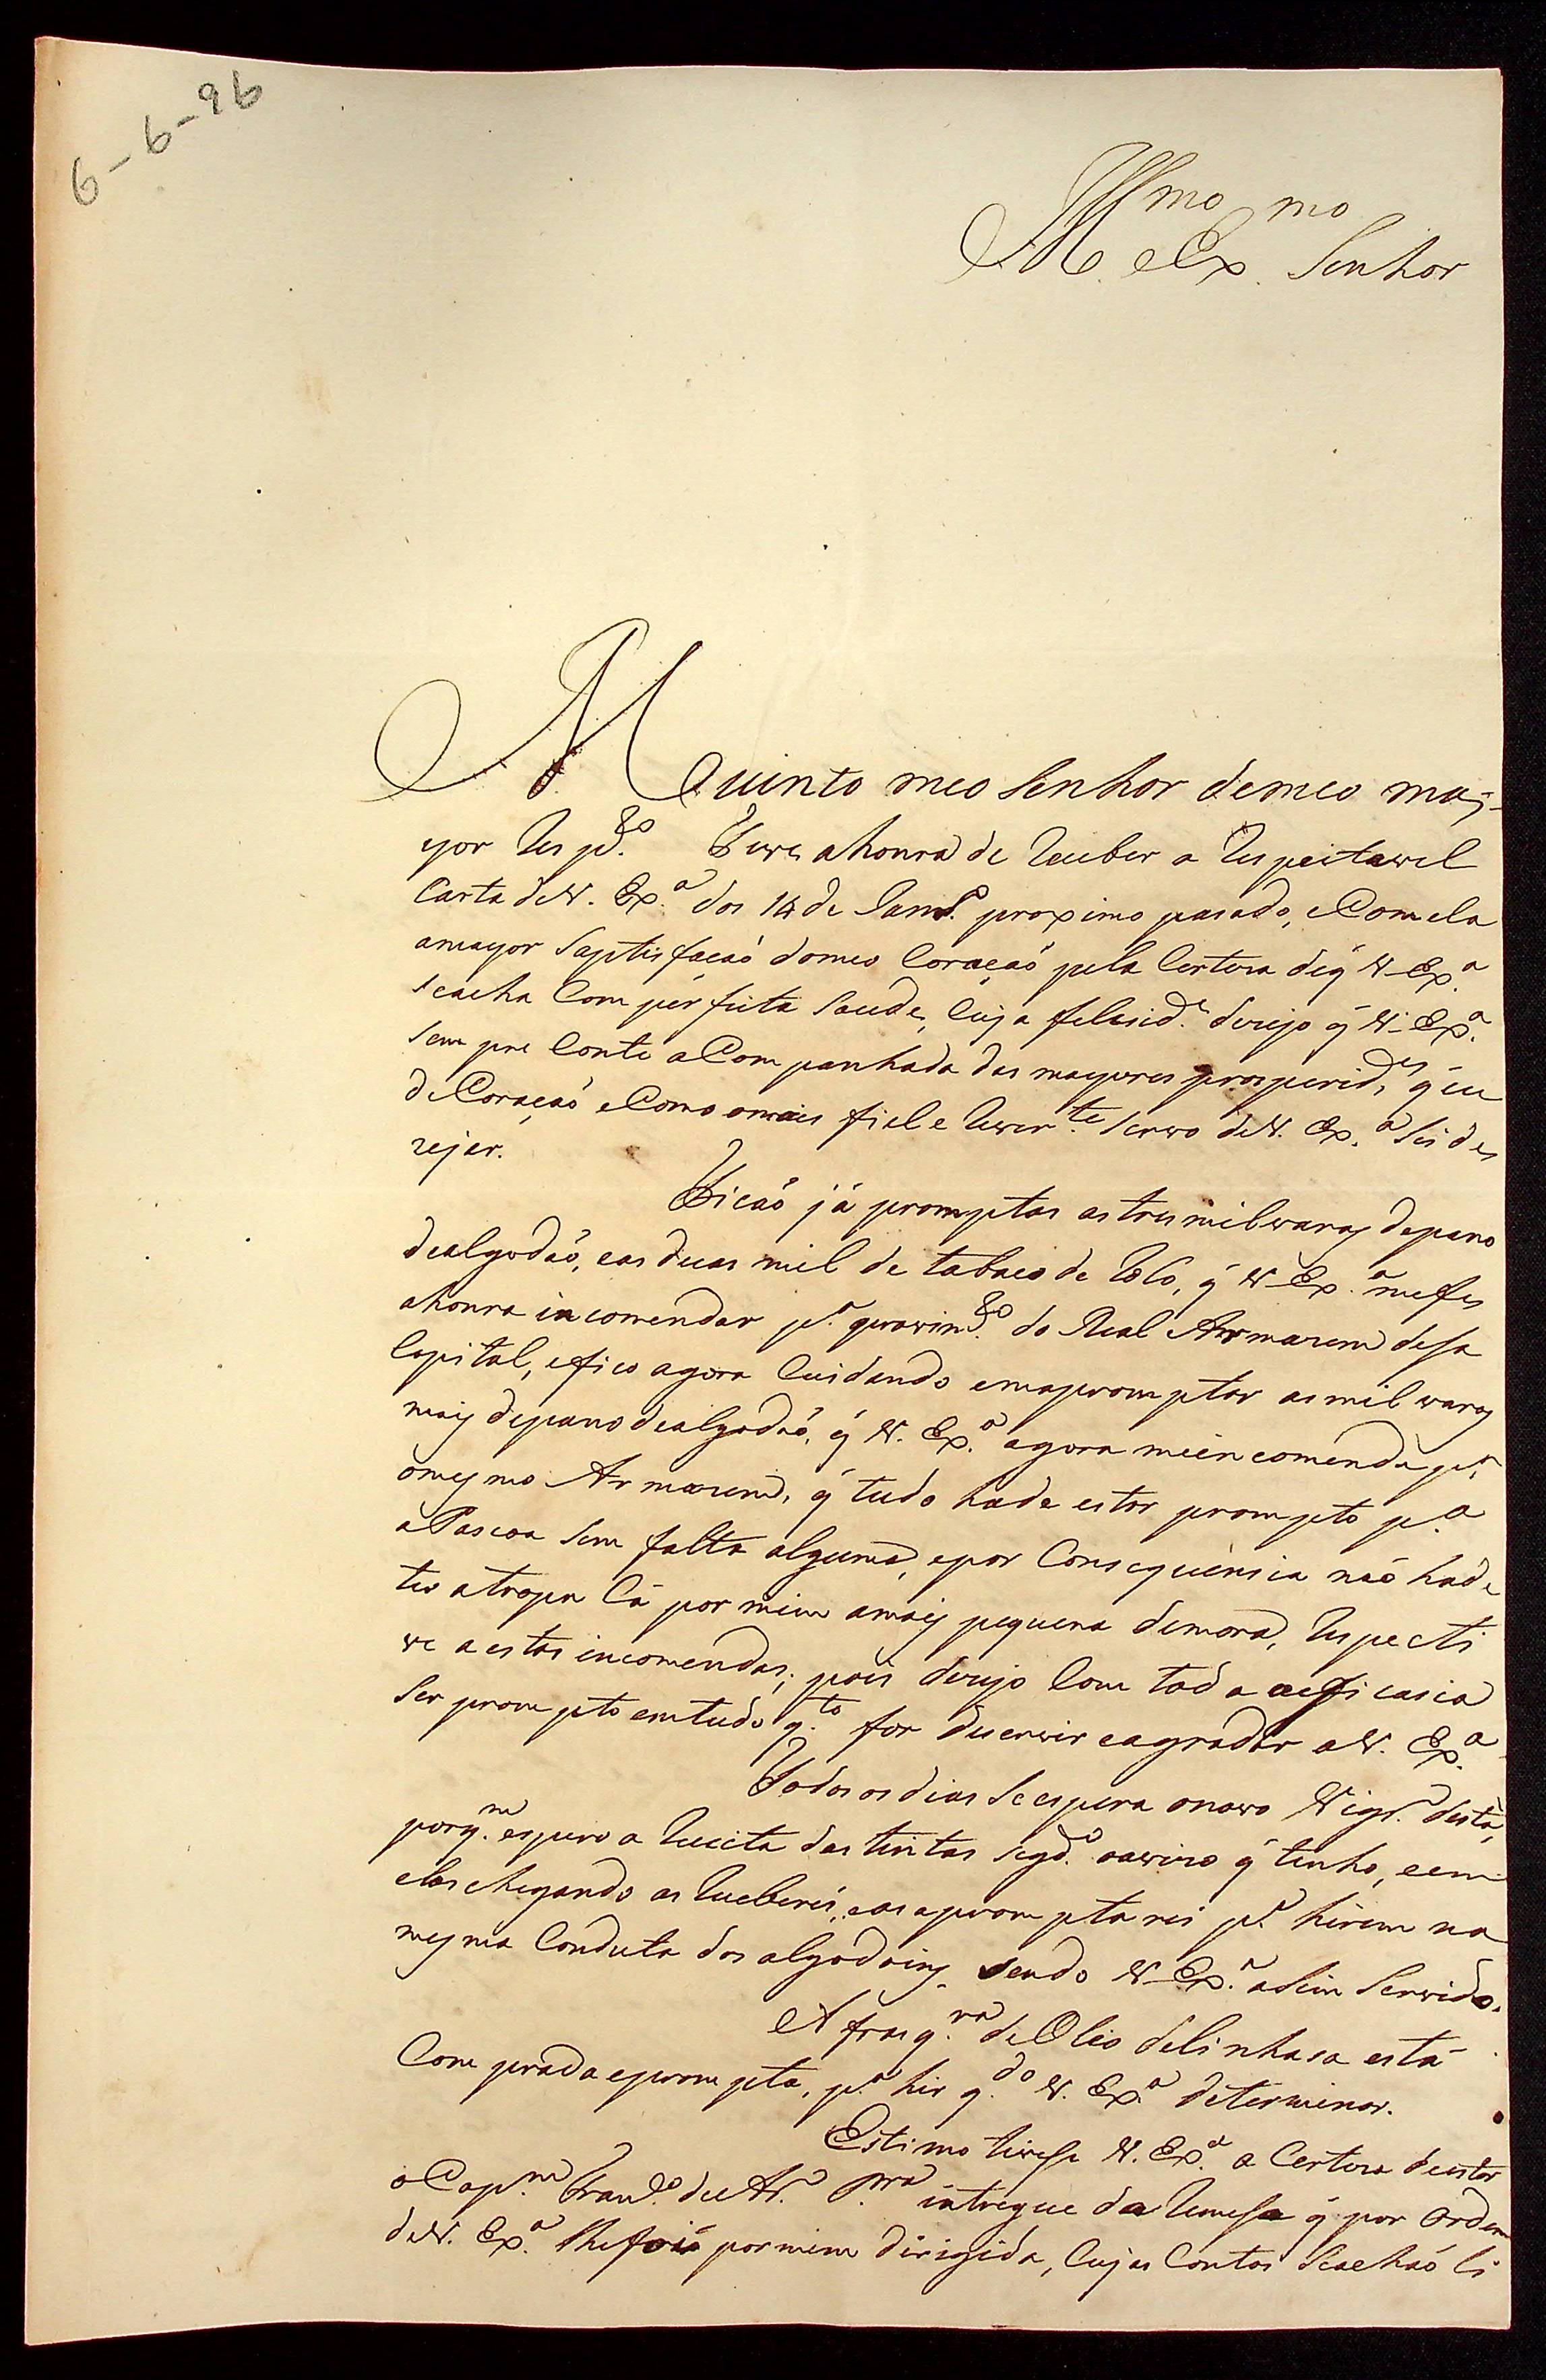 6-6-96
Illmo. e Exmo. Senhor
Muinto meo Senhor demeo mai-
yor Respto. Tive ahonra de Receber a Respeitavel
Carta deV. Exa. dos 14 de Janro. proximo pasado, eComela
amayor Saptisfacaõ domeo Coraçaõ pela Certeza deq̃ V. Exa.
seacha Com perfeita Saude, Cuja feleside. dezejo q̃ V. Exa.
sempre Conte aCompanhada das mayores prosperides. q̃ eu
deCoraçaõ eComo omais fiel e Rever.te Servo deV. Exa. Sei de
zejar.
Ficaõ já promptas as tres mil varas depano
dealgodaõ, eas duas mil de tabaco de Rolo, q̃ V. Exa. mefes
ahonra incomendar pa. provimto. do Real Armazem desa
Capital, efico agora Cuidando emapromptar as mil varas
mais depano dealgodaõ, q̃ V. Exa. agora meencomenda pa.
omesmo Armazem, q̃ tudo hade estar prompto pa.
aPascoa sem falta alguma, epor Consequensia naõ hade
ter atropa Lá por mim amais pequena demora, Respecti
ve aestas incomendas; pois dezejo Com toda aeficasia
Ser prompto emtudo q.to for deservir eagradar aV. Exa.
Todos os dias Seespera onovo Vigro. desta,
porq.m espero a Receita das tintas segdo. oavizo q̃ tenho, eem
elas chegando as Receberei, eas apromptarei pa. hirem na
mesma Conduta dos algodoins sendo V. Exa. asim Servido.
A frasq.ra deOlio delinhasa está
Comprada eprompta, pa. hir q.do V. Exa. determinar.
Estimo tivese V. Exa. a Certeza deestar
oCap.m Franco. de Pra. intregue da Remesa q̃ por Ordem
deV. Exa. lhefoi pormim dirigida, Cujas Contas Seachaõ li